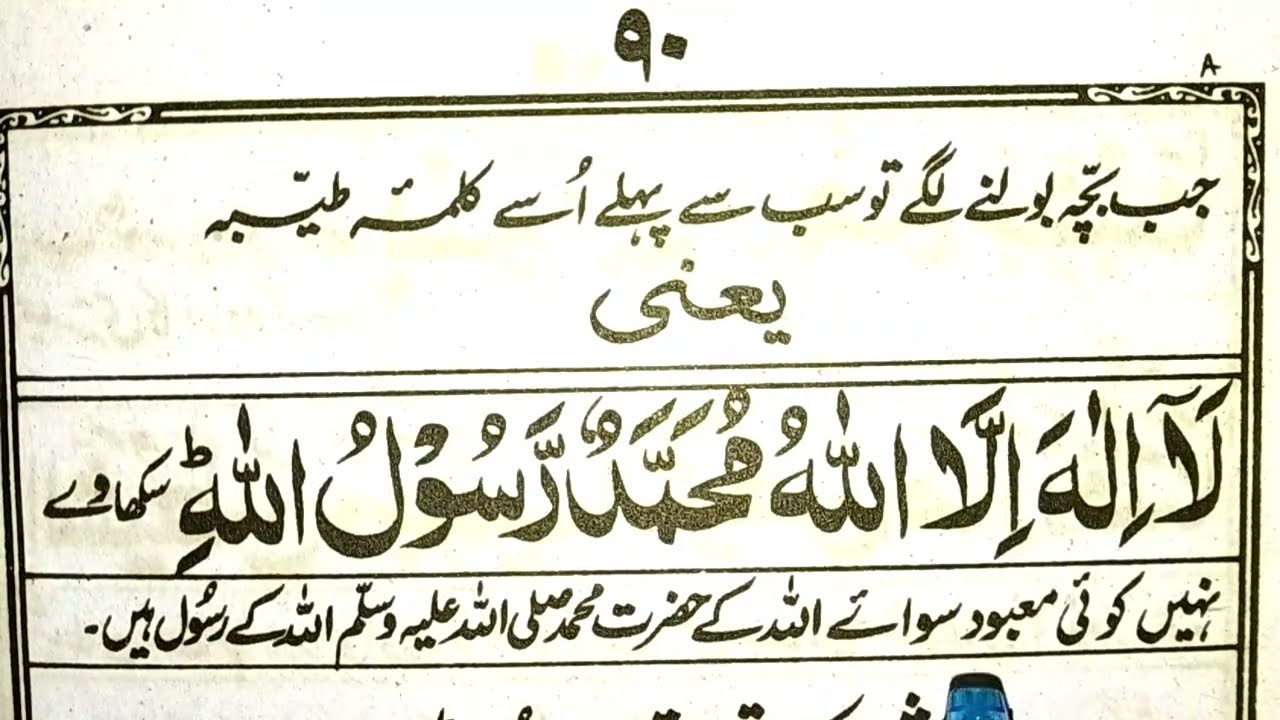 ٩٠
A
جب بچّہ بولنے لگے تو سب سے پہلے اُسے کلمۂ طیّبہ
یعنی
لَآ اِلٰهَ اِلَّا اللّٰهُ مُحَمَّدٌ رَّسُوْلُ اللّٰهِؕ سکھاوے
نہیں کوئی معبود سوائے اللہ کے حضرت محمد صلی اللہ علیہ وسلّم اللہ کے رسُول ہیں۔